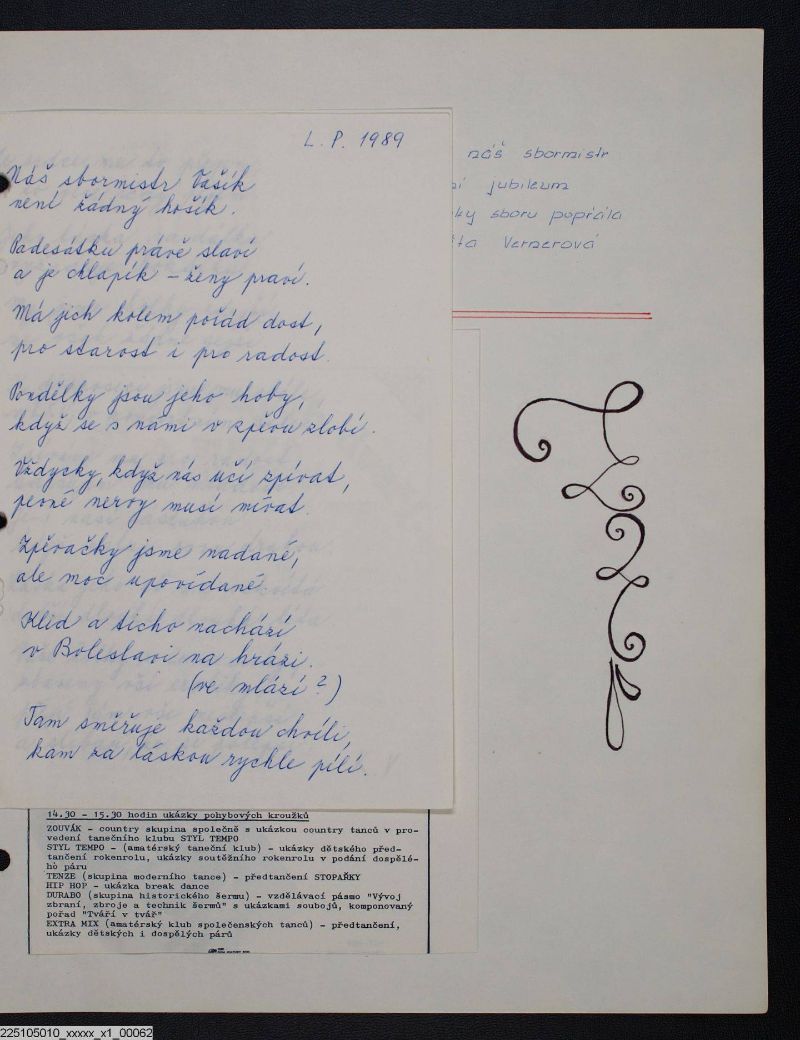 L. P. 1989
Náš sbormistr Vašík
není žádný hošík.
Padesátku právě slaví
a je chlapík – ženy praví.
Má jich kolem pořád dost,
pro starost i pro radost.
Pondělky jsou jeho hoby,
když se s námi v zpěvu zlobí.
Vždycky, když nás učí zpívat,
pevné nervy musí mívat.
Zpěvačky jsme nadané,
ale moc upovídané.
Klid a ticho nachází
v Boleslavi na hrázi.
(ve mlází?)
Tam směřuje každou chvíli,
kam za láskou rychle pílí.
náš sbormistr
ní jubileum
ky sboru popřála
ta Vernerová
14.30 - 15.30 hodin ukázky pohybových kroužků
ZOUVÁK - country skupina společně s ukázkou country tanců v pro-
vedení tanečního klubu STYL TEMPO
STYL TEMPO - (amatérský taneční klub) - ukázky dětského před-
tančení rokenrolu, ukázky soutěžního rokenrolu v podání dospělé-
ho páru
TENZE (skupina moderního tance) - předtančení STOPAŘKY
HIP HOP - ukázka break dance
DURABO (skupina historického šermu) - vzdělávací pásmo "Vývoj
zbraní, zbroje a technik šermů" s ukázkami soubojů, komponovaný
pořad "Tváří v tvář"
EXTRA MIX (amatérský klub společenských tanců) - předtančení,
ukázky dětských i dospělých párů
225105010_xxxxx_x1_00062